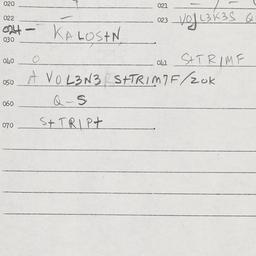 020 021
022 023 VOJL3K3S Q
024 -
030 KALOStN
040 O 041 StTRIMF
050 A VOL3N3 StTRIM7F/20K
060 Q-S
070 StTRIPt